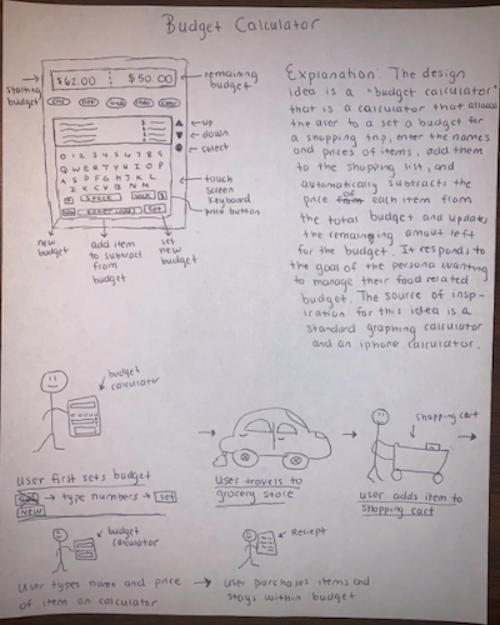 Budget Calculator
$62.00
$50.00
starting
budget
remaining
budget
ON
OFF
up
down
select
0 1 2 3 4 5 6 7 8 9
Q W E R T Y U I O P
A S D F G H J K L
Z X C V B N M
space
$
set
touch
screen
keyboard
price button
new
budget
add item
to subtract
from
budget
set
new
budget
Explanation: The design
idea is a "budget calculator"
that is a calculator that allows
the user to a set a budget for
a shopping trip, enter the names
and prices of items, add them
to the shopping list, and
automatically subtracts the
price of each item from
the total budget and updates
the remaining amout left
for the budget. It responds to
the goal of the persona wanting
to manage their food related
budget. The source of insp-
iration for this idea is a
standard graphing calculator
and an iphone calculator.
budget
calculator
user first sets budget
→ type numbers → set
NEW
user travels to
grocery store
shopping cart
user adds item to
shopping cart
budget
calculator
user types name and price
of item on calculator
Reciept
user purchases items and
stays within budget